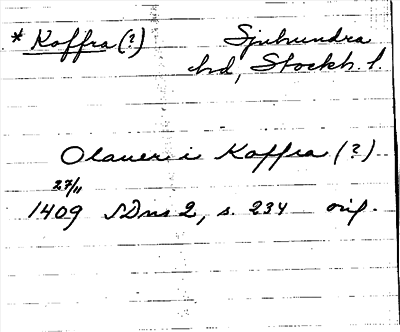 * Kaffra (?) Sjuhundra
hd, Stockh. l.
Olauer i Kaffra (?)
27/11
1409 SDns 2, s. 234 orig.